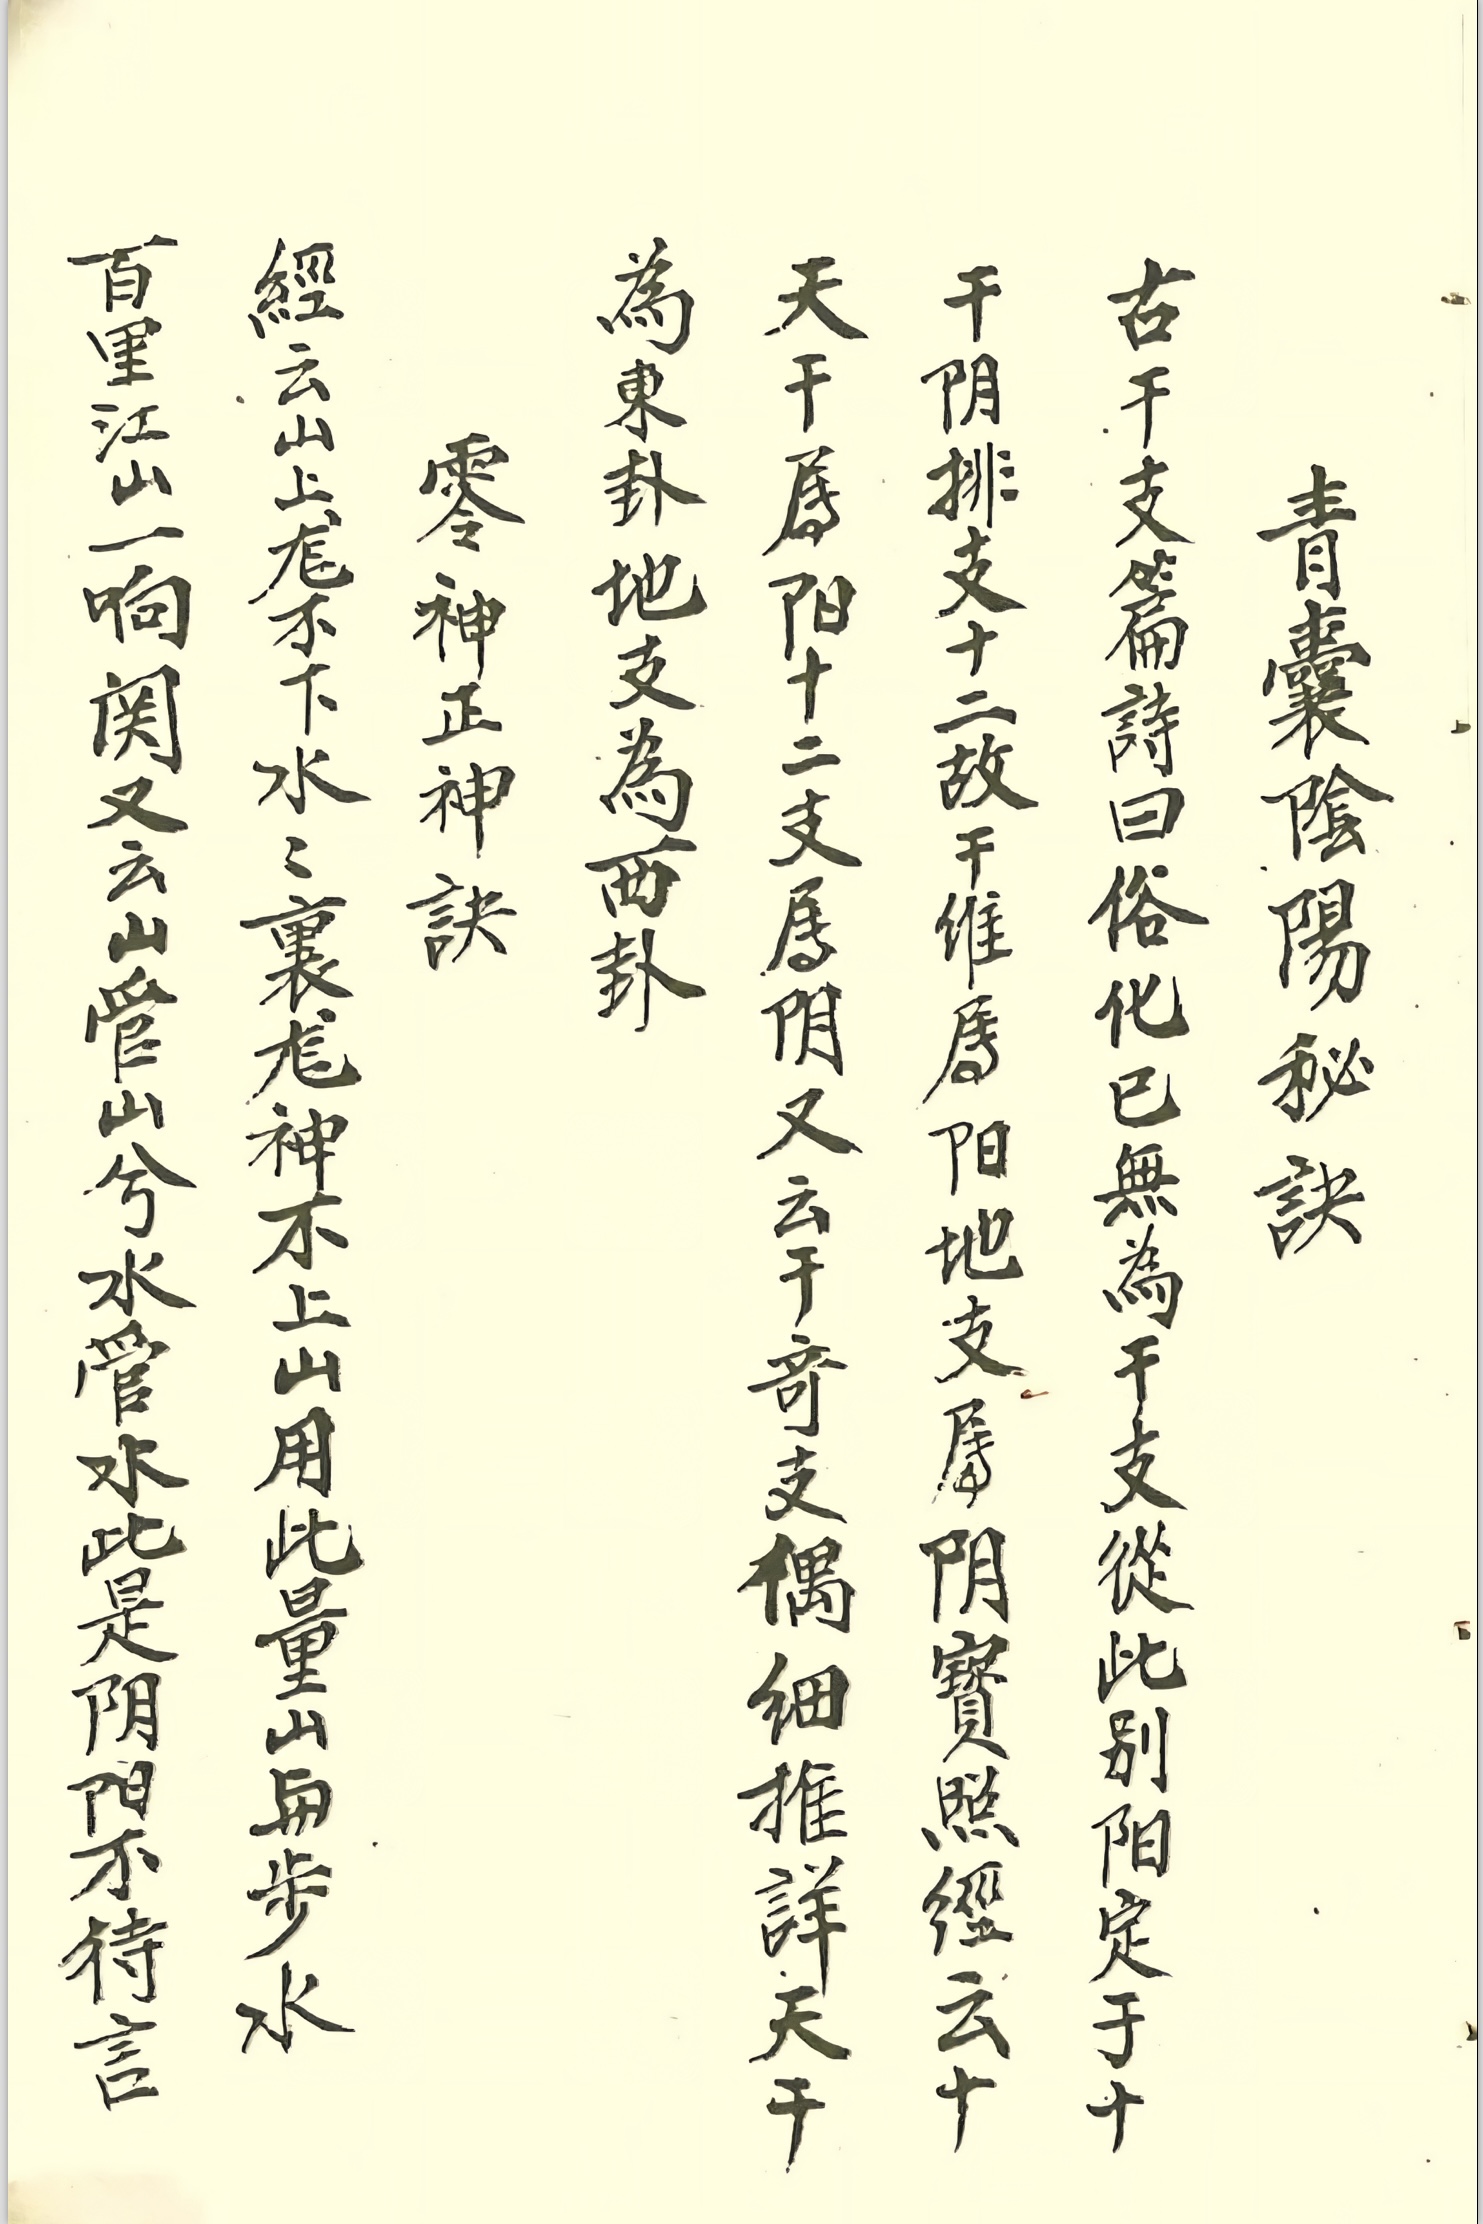 青囊陰陽秘訣
古干支篇詩曰俗化已無為干支從此别阳定于十
干阴排支十二故干维属阳地支属阴寳照經云十
天干属阳十二支属阴又云干奇支偶细推詳天干
為東卦地支為西卦
零神正神訣
經云山上尨不下水〻裏尨神不上山用此量山毋步水
百里江山一响関又云山管山兮水管水此是阴阳不待言